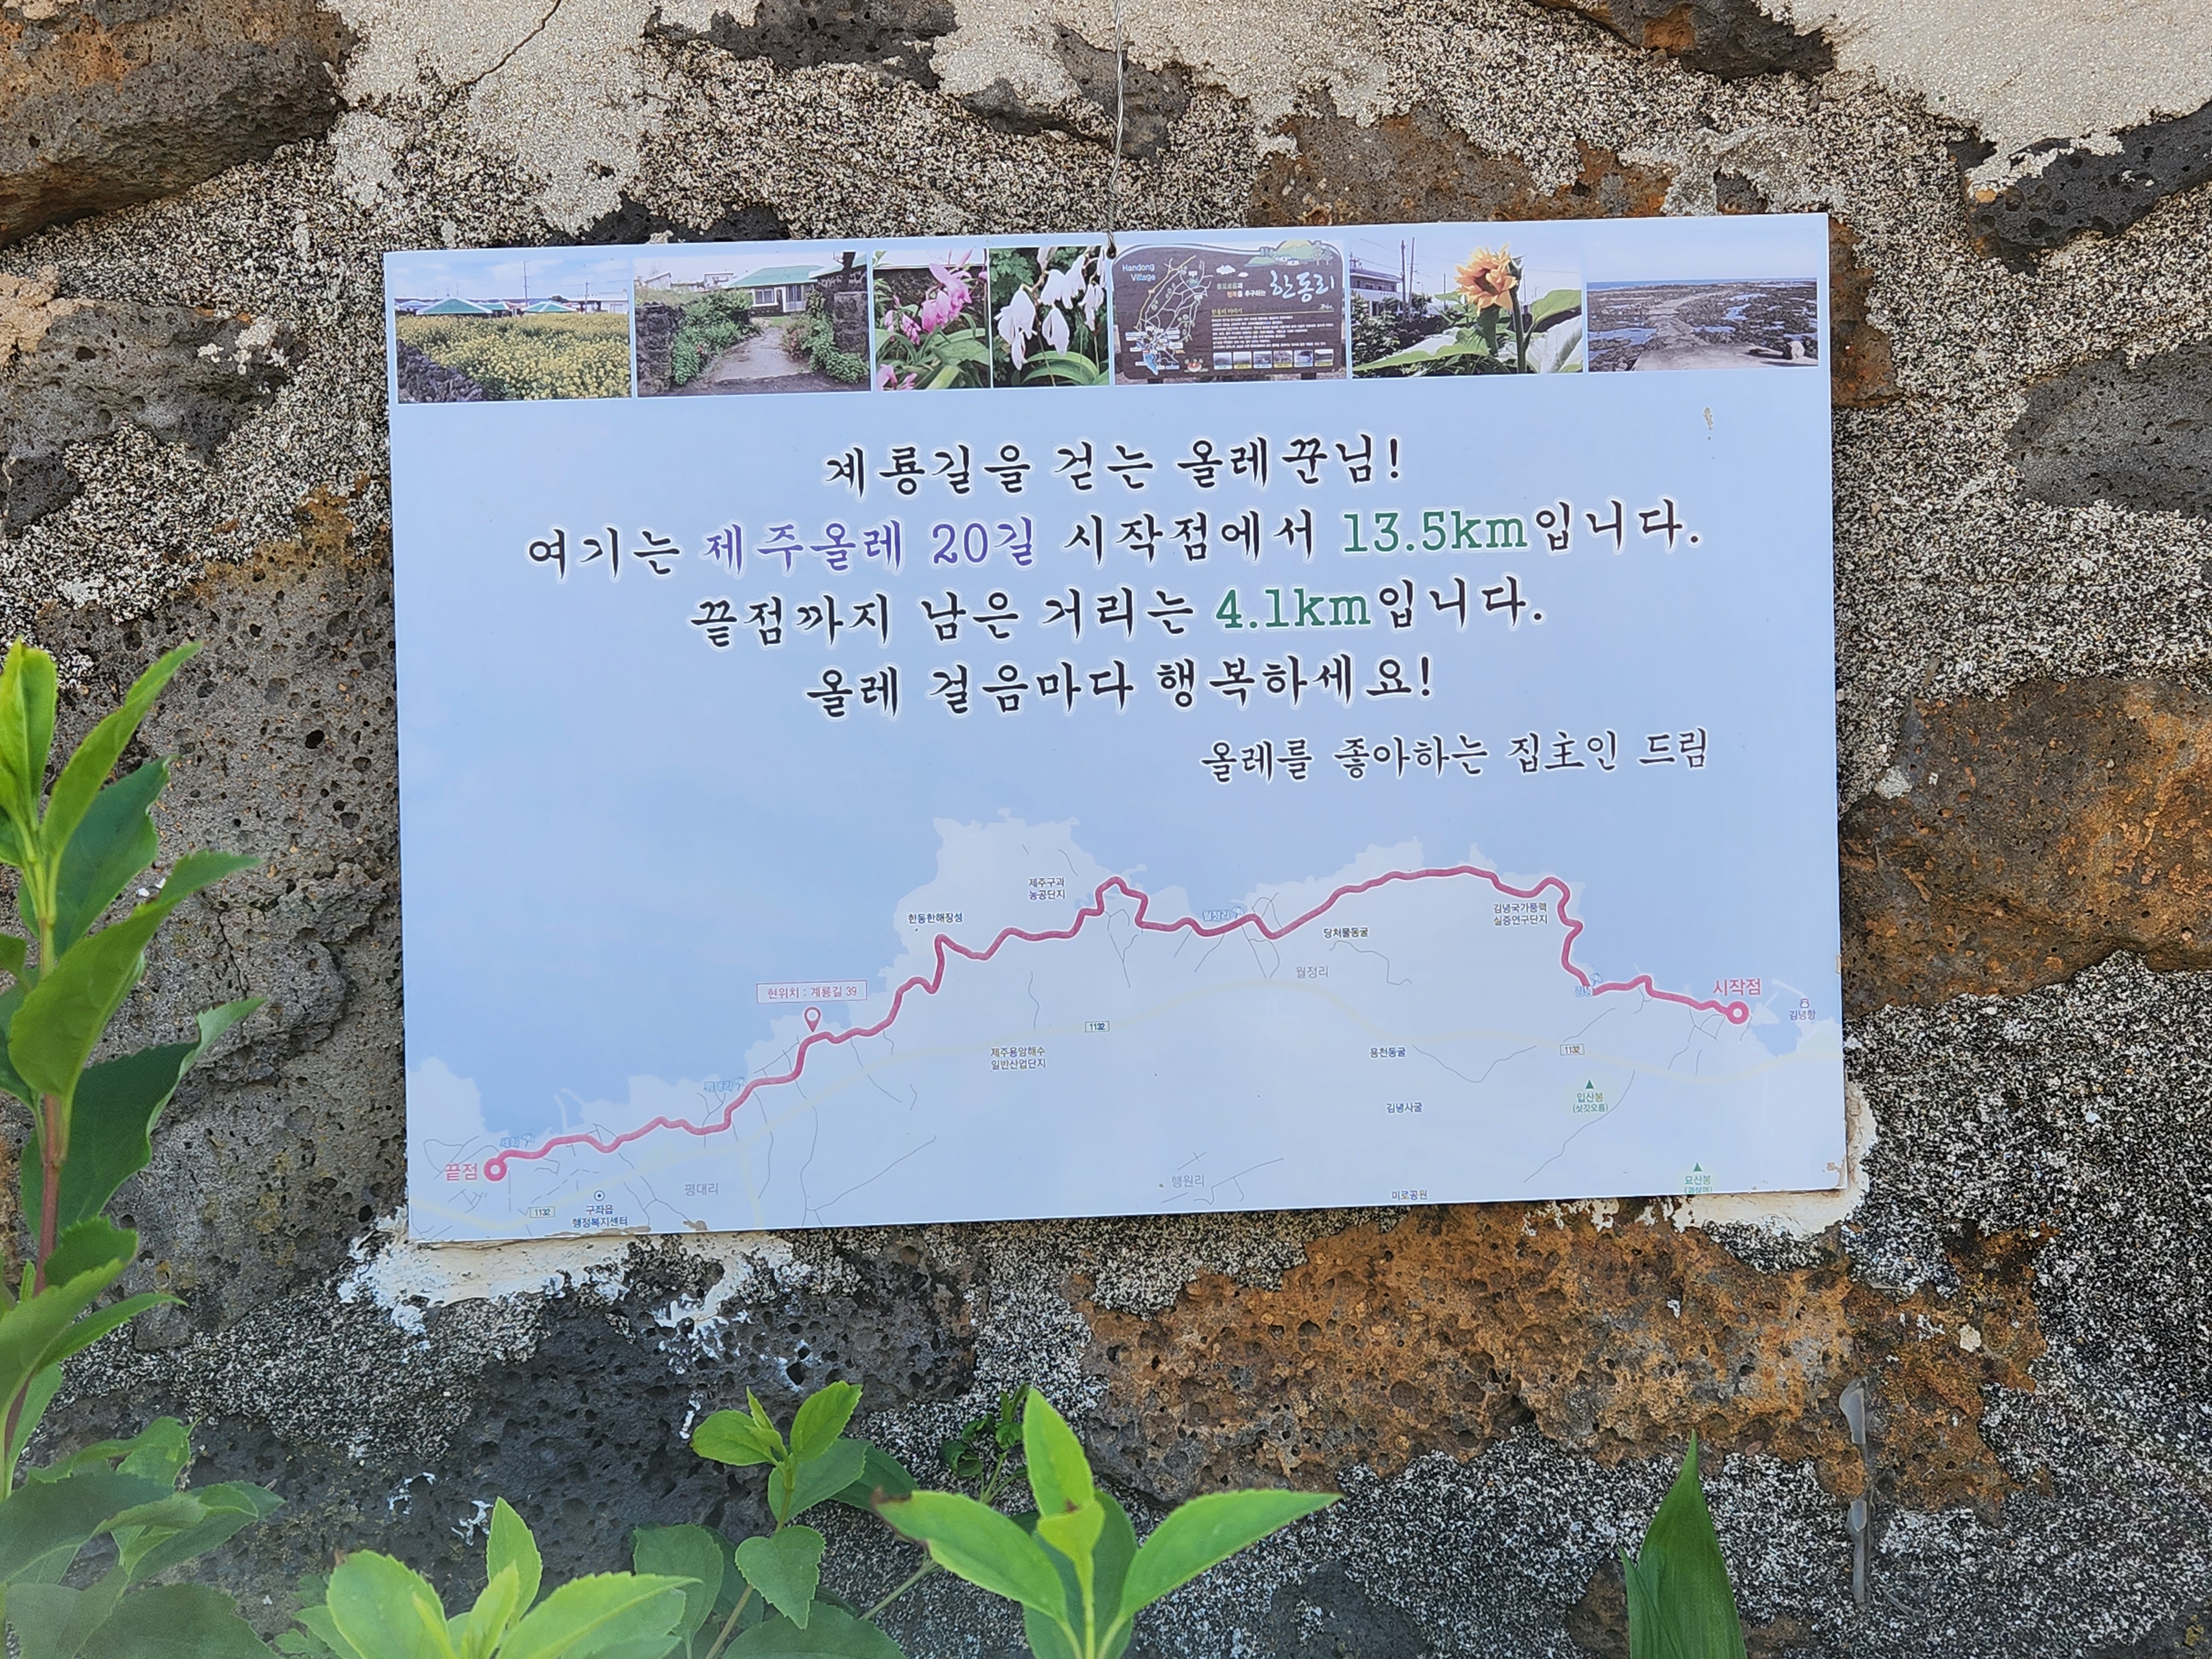 Handong
Village
한동리
계룡길을 걷는 올레꾼님!
여기는 제주올레 20길 시작점에서 13.5km입니다.
끝점까지 남은 거리는 4.1km입니다.
올레 걸음마다 행복하세요!
올레를 좋아하는 집主인 드림
제주구좌
농공단지
한동환해장성
월정리
김녕국가풍력
실증연구단지
당처물동굴
월정리
현위치 : 계룡길 39
시작점
김녕항
1132
제주용암해수
일반산업단지
용천동굴
1132
평대리
입산봉
(삿갓오름)
김녕사굴
세화
끝점
평대리
행원리
묘산봉
미로공원
1132
구좌읍
행정복지센터